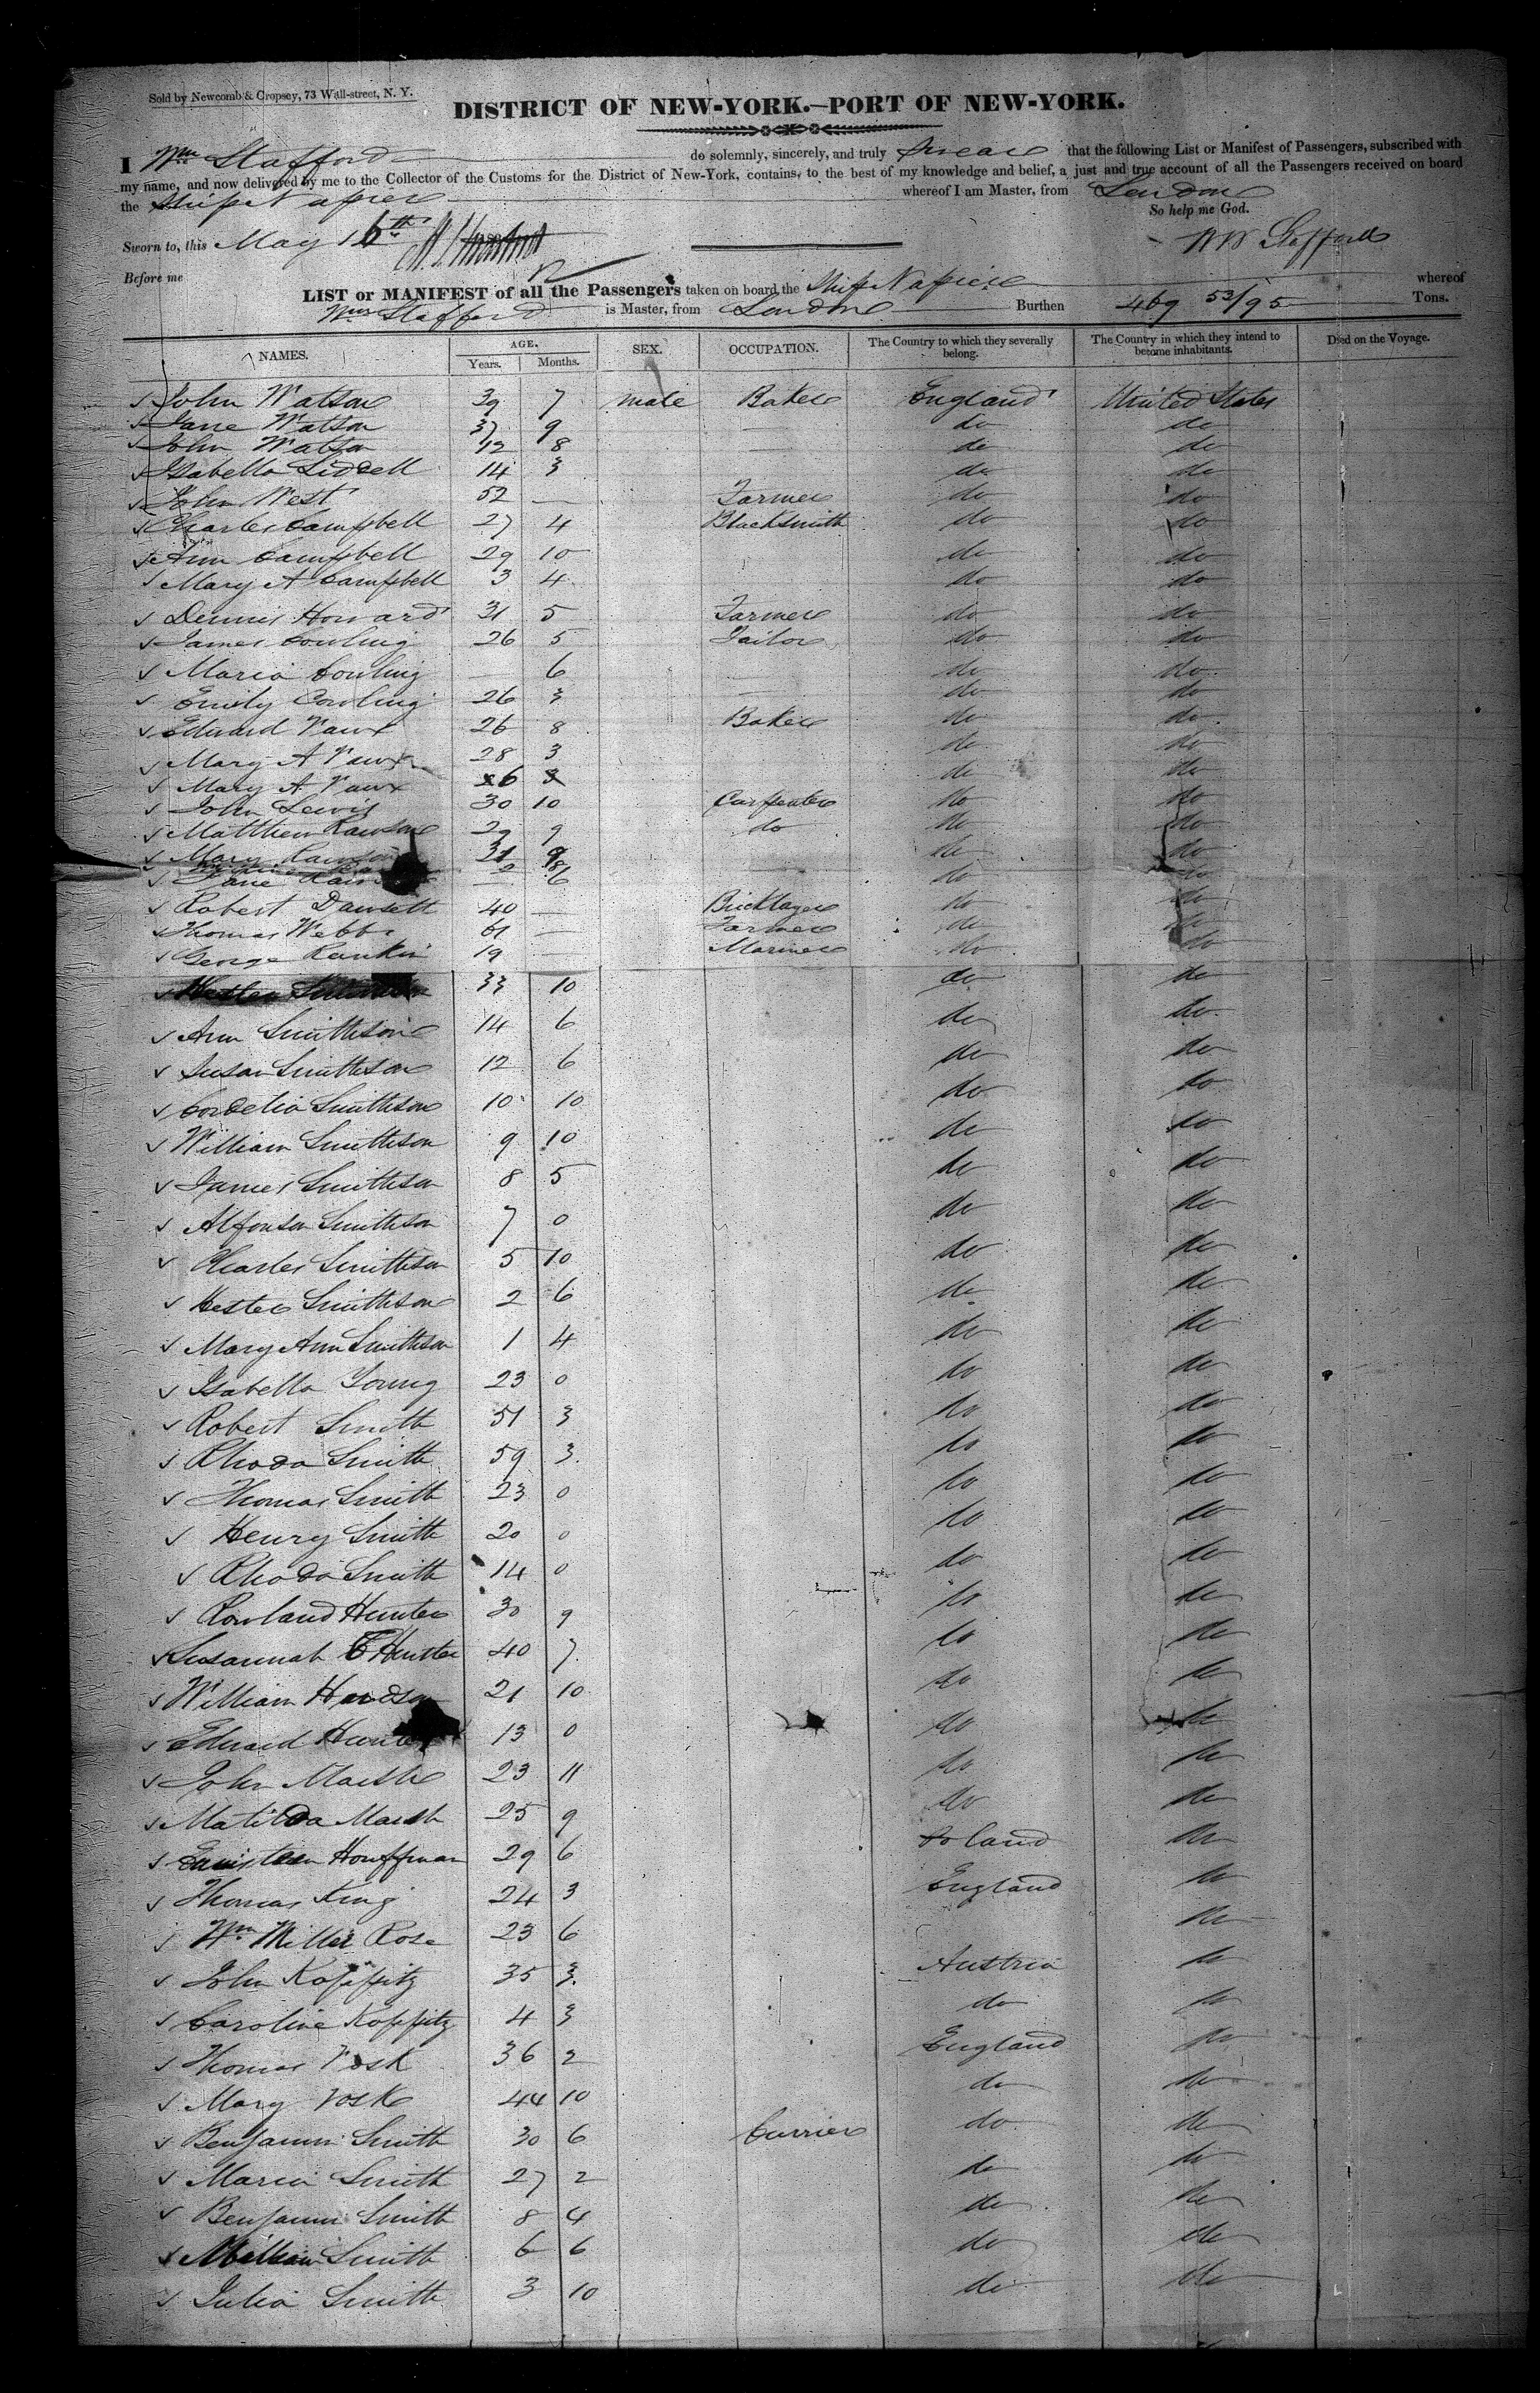 Sold by Newcomb & Cropsey, 73 Wall-street, N. Y.
DISTRICT OF NEW-YORK.—PORT OF NEW-YORK.
I Wm Stafford do solemnly, sincerely, and truly swear that the following List or Manifest of Passengers, subscribed with
my name, and now delivered by me to the Collector of the Customs for the District of New-York, contains, to the best of my knowledge and belief, a just and true account of all the Passengers received on board
the Ship Napier whereof I am Master, from London
So help me God.
Sworn to, this May 16th Wm Stafford
Before me
LIST or MANIFEST of all the Passengers taken on board the Ship Napier whereof
Wm Stafford is Master, from London Burthen 469 53/95 Tons.
NAMES. AGE. Years. Months. SEX. OCCUPATION. The Country to which they severally belong. The Country in which they intend to become inhabitants. Died on the Voyage.
John Watson 39 7 male Baker England United States
Jane Watson 37 9 — do do
John Watson 12 8 — do do
Isabella Liddell 14 3 do do
John West 52 — Farmer do do
Charles Campbell 27 4 Blacksmith do do
Ann Campbell 29 10 do do
Mary A Campbell 3 4 do do
Dennis Howard 31 5 Farmer do do
James Cowling 26 5 Tailor do do
Maria Cowling — 6 do do
Emily Cowling 26 3 — do do
Edward Vaux 26 8 Baker do do
Mary A Vaux 28 3 do do
Mary A Vaux 6 do do
John Lewis 30 10 Carpenter do do
Matthew Rawson 29 9 do do do
Mary Rawson 31 9 do do
Jane — 6 do do
Robert Dawsett 40 — Bricklayer do do
Thomas Webb 61 — Farmer do do
George Rankin 19 — Mariner do do
Hester 33 10 do do
Ann Smithson 14 6 do do
Susan Smithson 12 6 do do
Cordelia Smithson 10 10 do do
William Smithson 9 10 do do
James Smithson 8 5 do do
Alfonson Smithson 7 0 do do
Charles Smithson 5 10 do do
Hester Smithson 2 6 do do
Mary Ann Smithson 1 4 do do
Isabella Young 23 0 do do
Robert Smith 51 3 do do
Rhoda Smith 59 3 do do
Thomas Smith 23 0 do do
Henry Smith 20 0 do do
Rhoda Smith 14 0 do do
Rowland Hunter 30 9 do do
Susannah Hunter 40 7 do do
William Hudson 21 10 do do
Edward Hunter 13 0 do do
John Marsh 23 11 do do
Matilda Marsh 25 9 do do
Houffman 29 6 Poland do
Thomas King 24 3 England do
Wm Miller Rose 23 6 do
John Koppitz 35 3 Austria do
Caroline Koppitz 4 3 do do
Thomas Vosk 36 2 England do
Mary Vosk 44 10 do do
Benjamin Smith 30 6 Currier do do
Maria Smith 27 2 do do
Benjamin Smith 8 4 do do
William Smith 6 6 do do
Julia Smith 3 10 do do